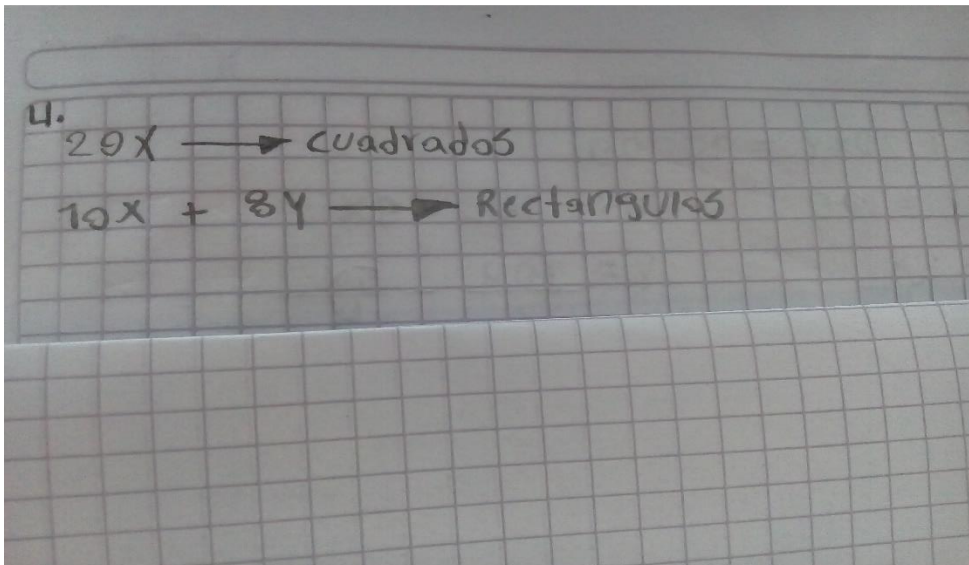 4.
20X → cuadrados
10X + 8Y → Rectangulos